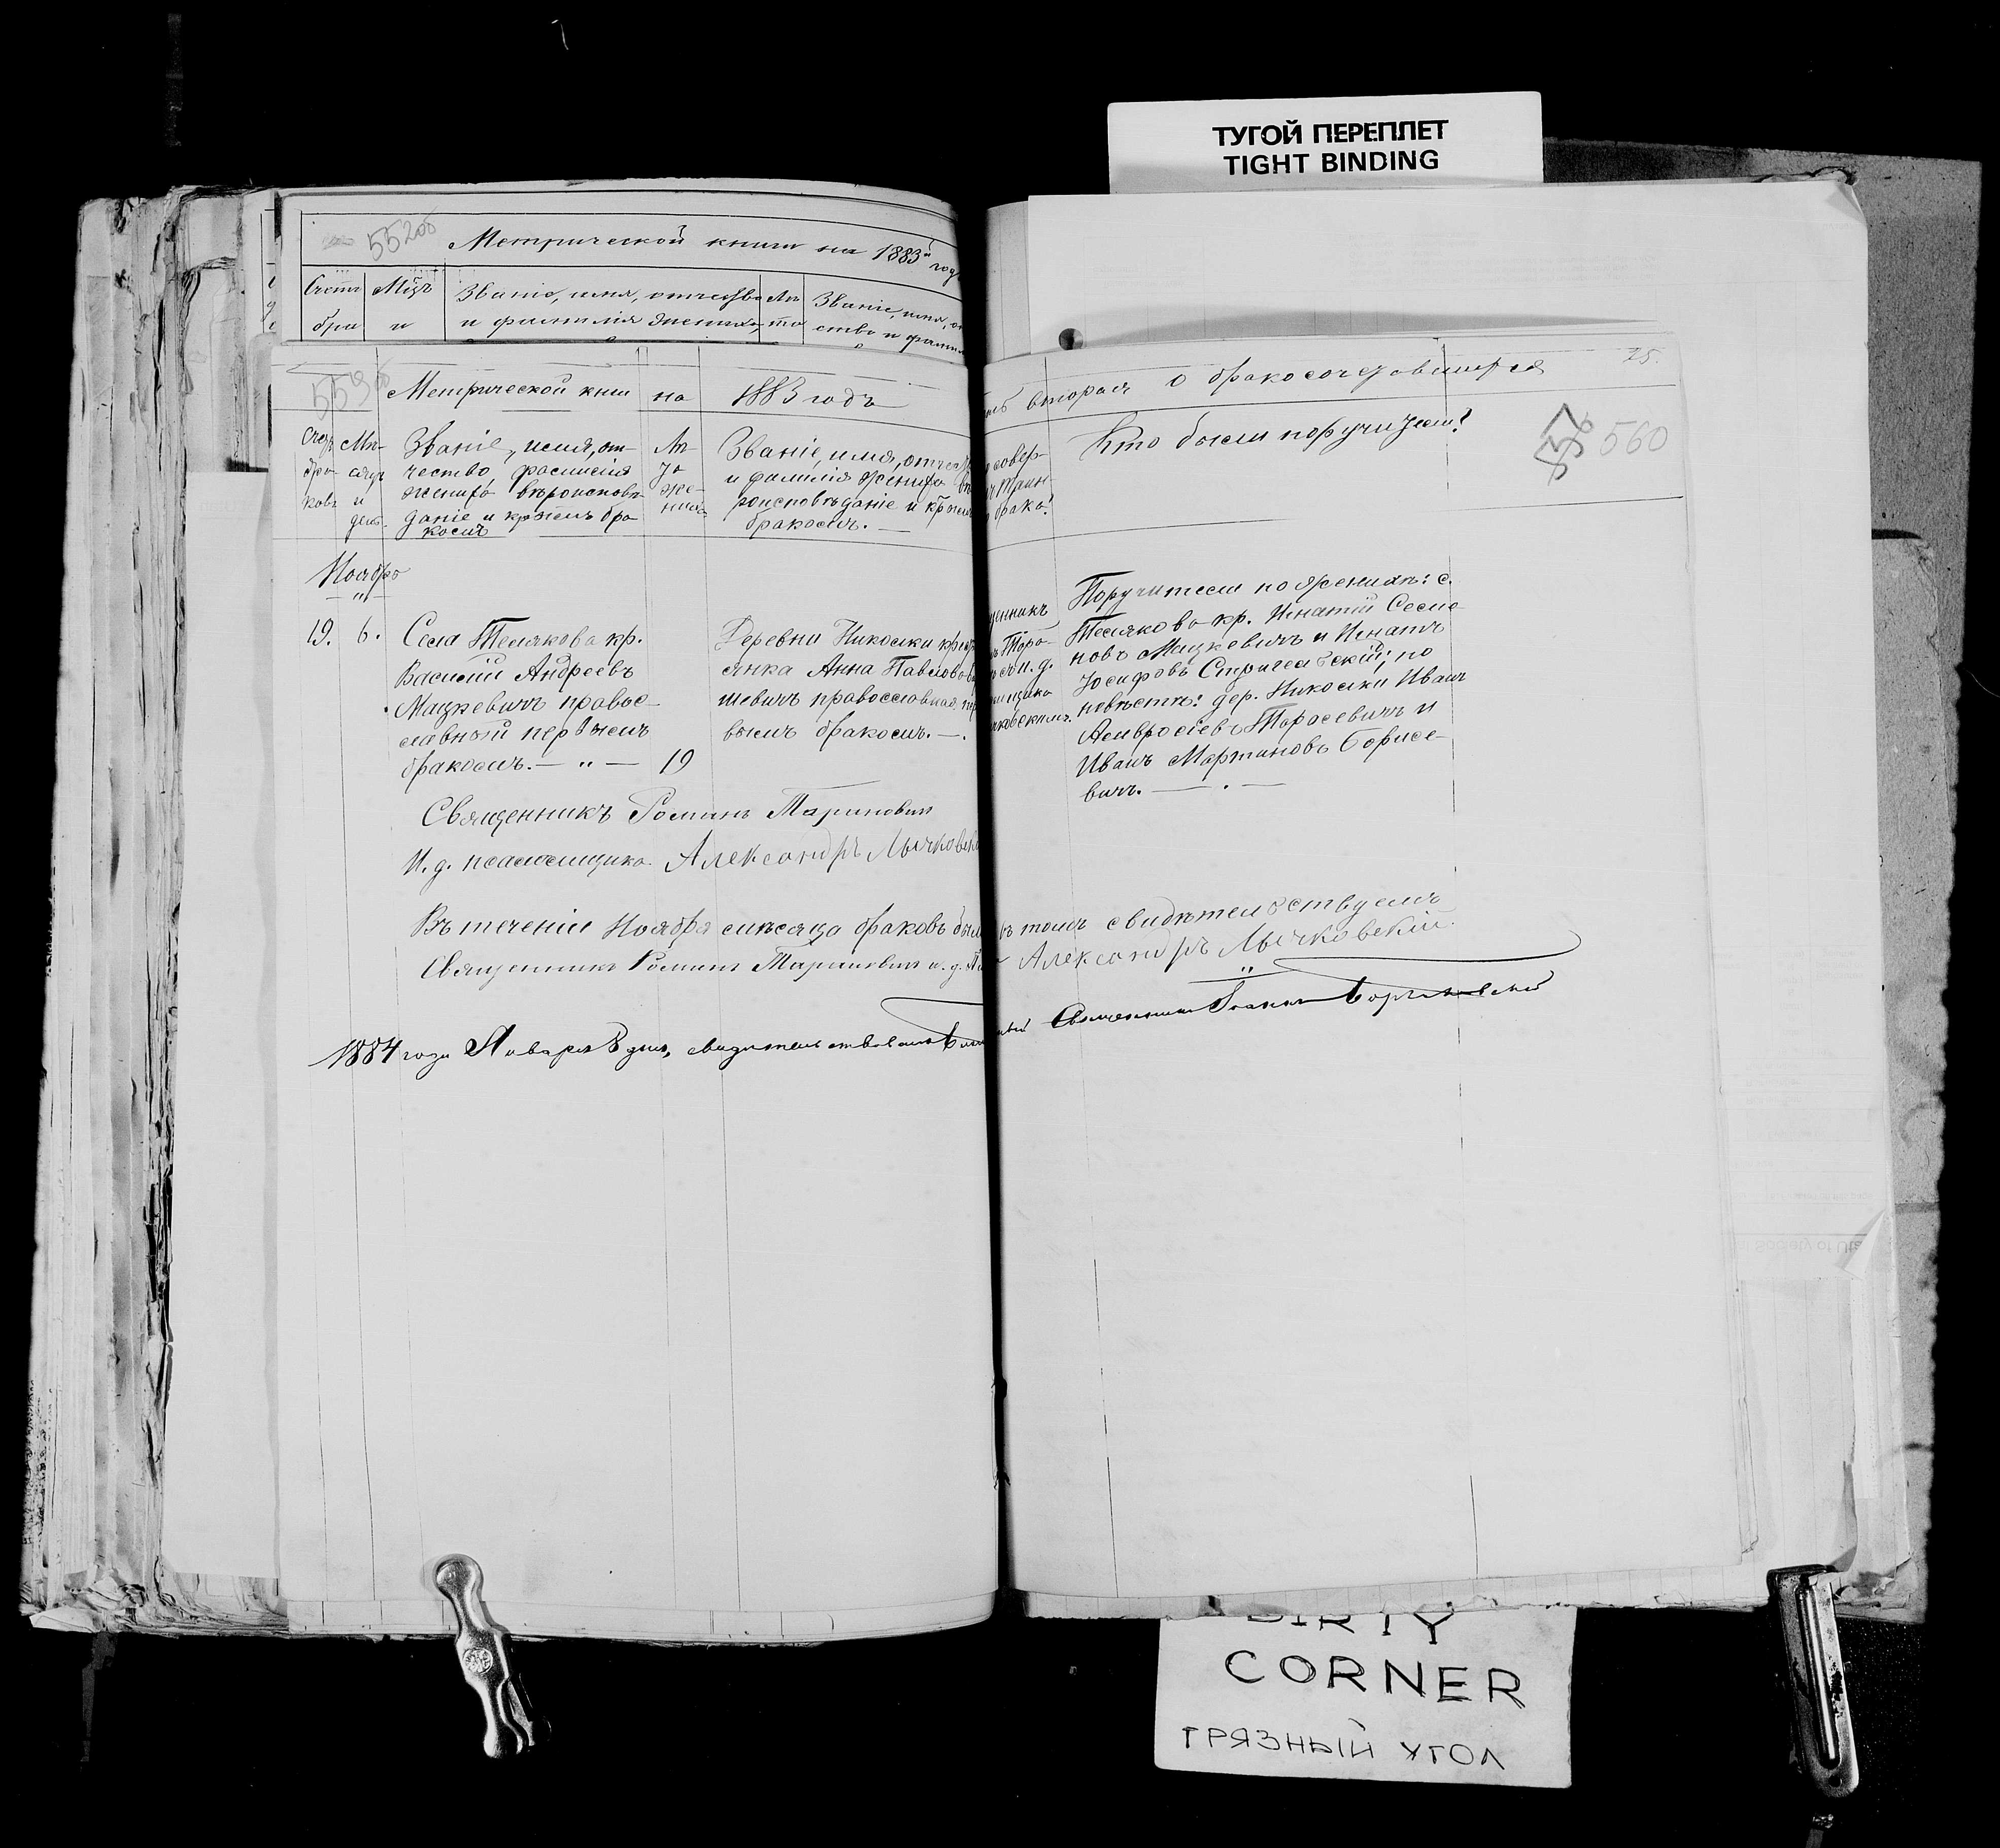 ТУГОЙ ПЕРЕПЛЕТ
TIGHT BINDING
552об
Метрической книги на 1883й годъ
Счетъ
бра
Мцъ
и
Званіе, имя, отчество
и фамилія жениха,
Лѣ
та
Званіе, имя,
ство и фами
25.
Метрической книги на 1883 годъ
вторая о бракосочетавшихся
557 560
Счетъ
бра-
ковъ
Мѣ-
сяцъ
и
день.
Званіе, имя, от-
чество фамилія
жениха вѣроисповѣ-
даніе и кртмъ бра
комъ
Лѣ-
та
же-
ниха
Званіе, имя, отчес
и фамилія жениха вѣ
роисповѣданіе и
бракомъ. —
совер-
таин-
брака?
Кто были поручители?
Ноябрь
— " —
19. 6.
Села Телякова кр.
Василій Андреевъ
Мацкевичъ правос-
лавный первымъ
бракомъ. — " — 19
Деревни Николки крест
янка Анна Павлова
шевичъ православная
вымъ бракомъ. —.
щенникъ
Тара-
и. д.
мщика
чковскимъ.
Поручители по женихѣ: с.
Теляково кр. Игнатій Семе-
новъ Мацкевичъ и Игнатъ
Іосифовъ Стричевскій; по
невѣстѣ: дер. Николки Иванъ
Амвросіевъ Тарасевичъ и
Иванъ Мартиновъ Борисе-
вичъ. — . —
Священникъ Романъ Тарановичъ
И. д. псаломщика Александръ Лычковск
Въ теченіи Ноября мѣсяца браковъ был въ томъ свидѣтельствуемъ
Священникъ Романъ Таранович и. д. Александръ Лычковскій.
1884 года Января 8 дня, свидѣтельствовалъ Священникъ
DIRTY
CORNER
ГРЯЗНЫЙ УГОЛ